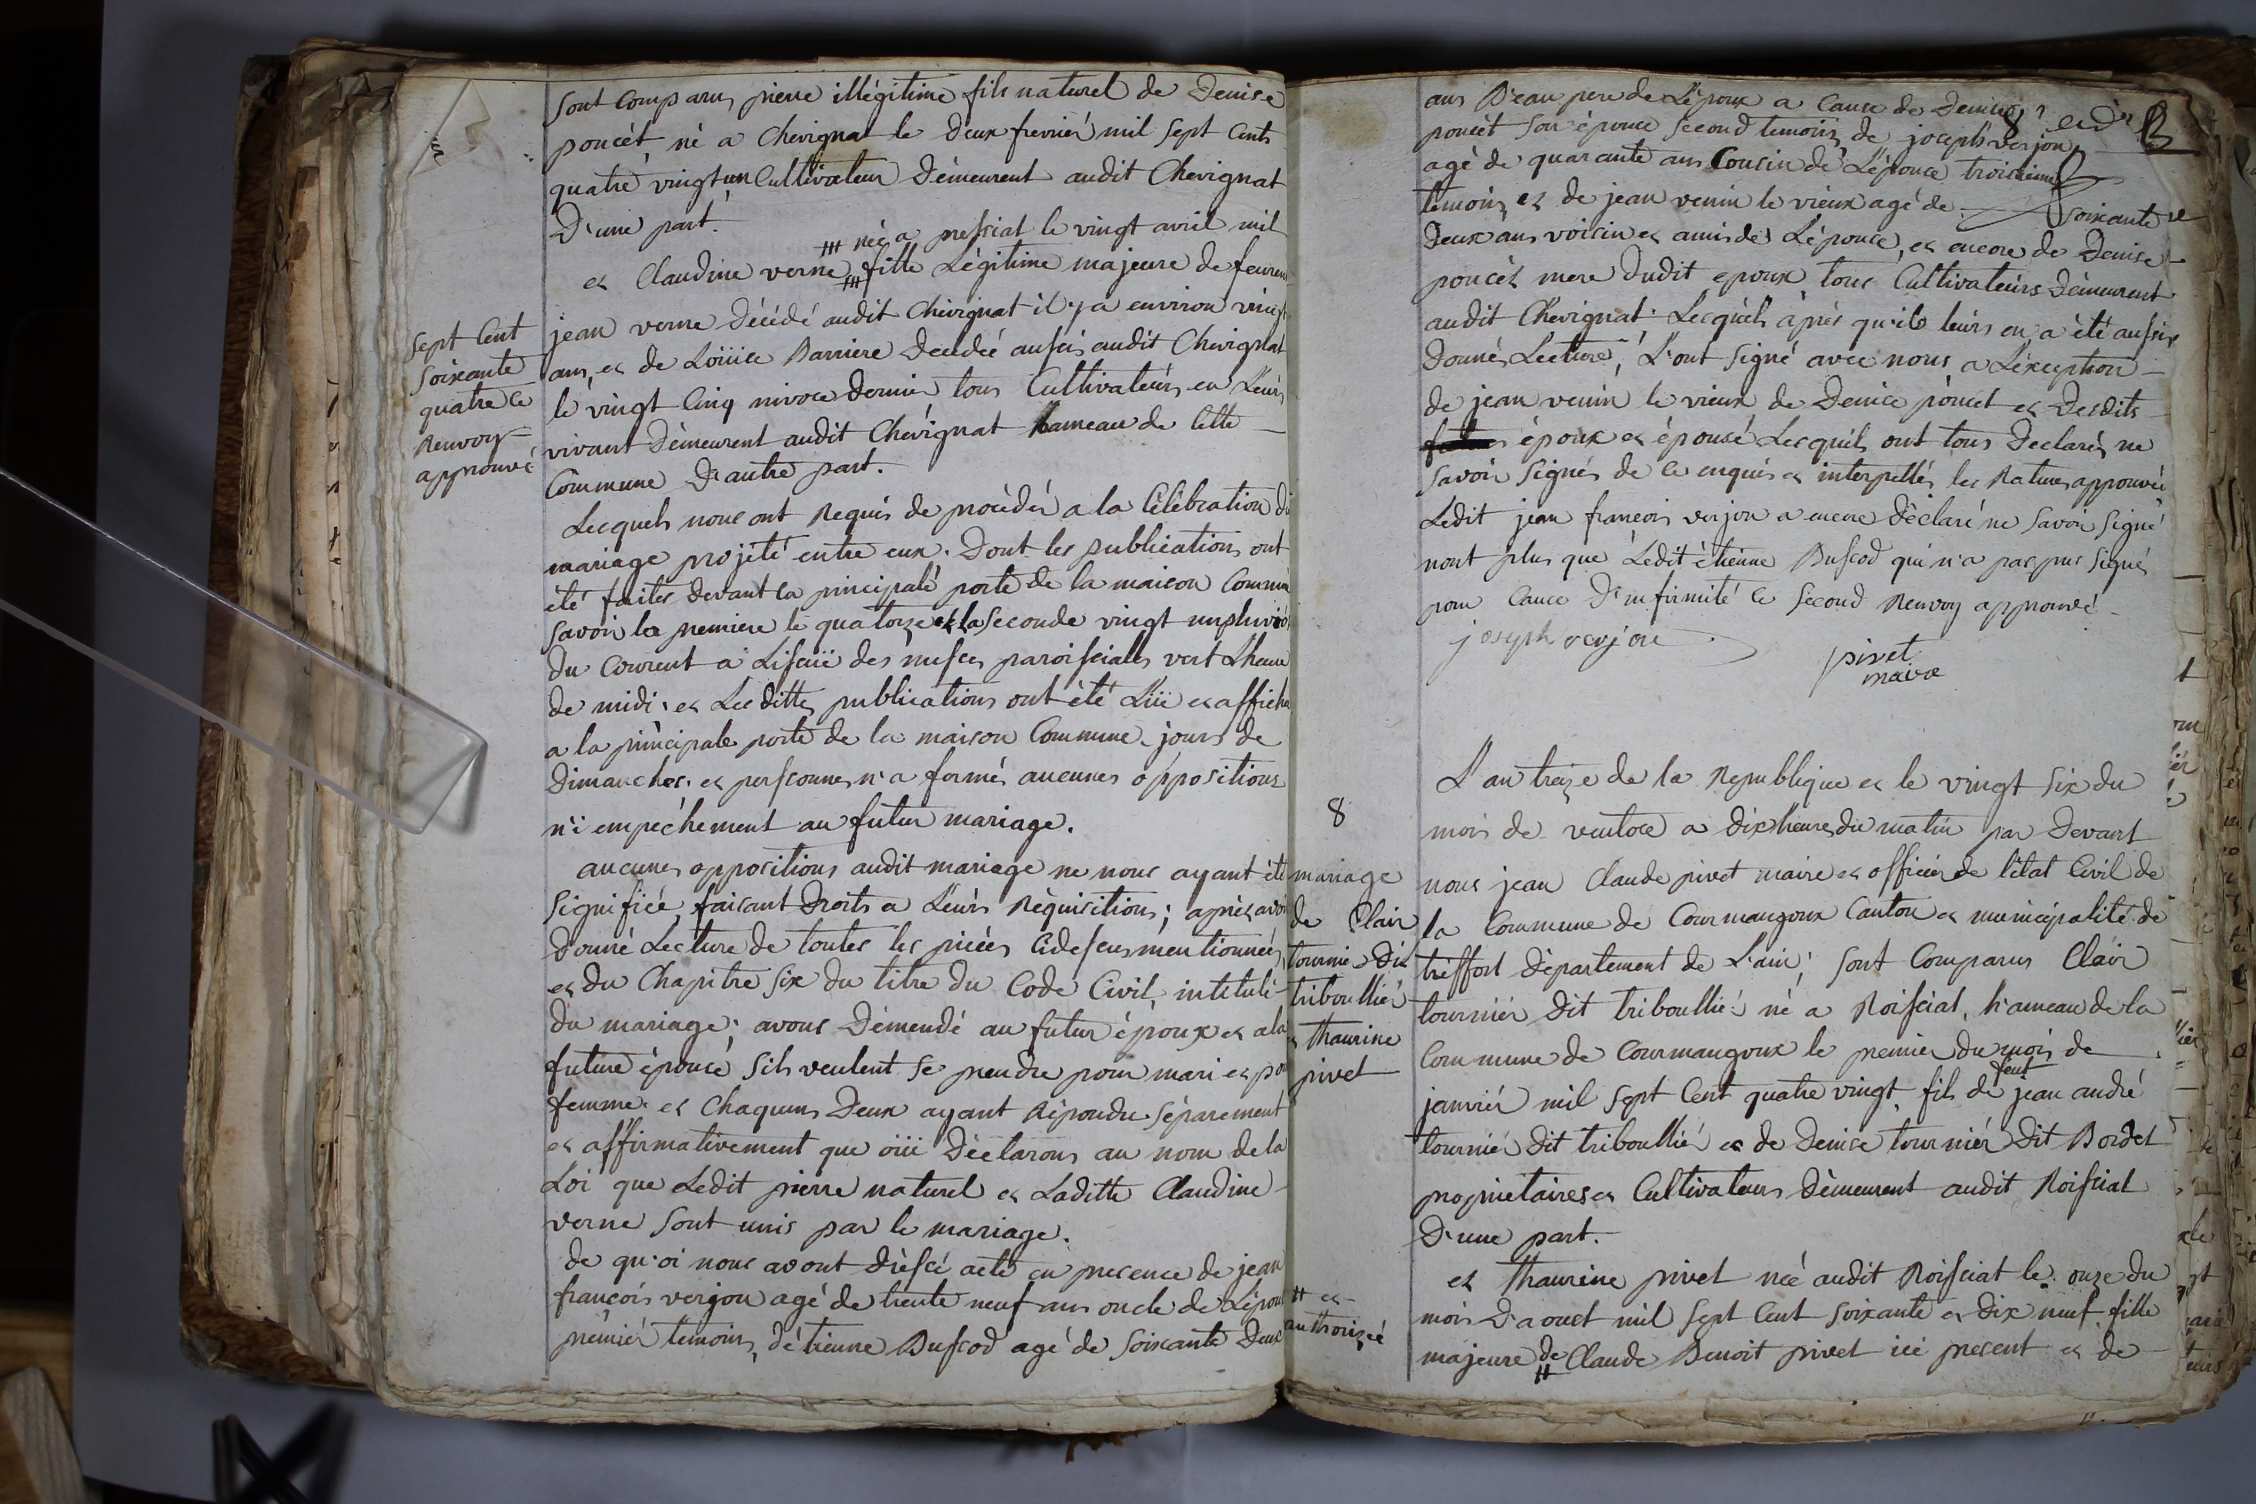 sont comparus pierre illégitime fils naturel de Denise
poncèt né a chevignat le deux frevrier mil sept Cents
quatre vingt un Cultivateur Dèmeurent audit Chevignat
D'une part.
née a pressiat le vingt avril mil
et Claudine verne fille Légitime majeure de feu
jean verne Décédé audit chevignat il y a environ vingt
ans, et de Loüise Barriere Decedée aussis audit Chevignat
le vingt Cinq nivose dernier tous Cultivateurs en Leurs
vivant Dèmeurent audit Chévignat hameau de Cette
Commune D'autre part.
sept Cent
soixante
quatre ce
Renvoy
approuvé
Lesquels nous ont Requis de procèdér a la Célébration du
mariage projèté entre eux. Dont les publications ont
été faites devant la principale porte de la maison Commune
savoir la premiere le quatorze et la seconde vingt un pluviôs
du Courent a Lissüe des messes paroissiales vert Lheure
de midi. et Lesdittes publications ont été Lüë et affiche
a la principale porte de la maison Commune jours de
Dimanches. et perssonne n'a formés aucunes oppositions
n'i empêchement au futur mariage.
aucunes oppositions audit mariage ne nous ayant été
signifiée, faisant Droits a Leurs Réquisitions; après avoir
Donné Lecture de toutes les pièces Cidessus mentionnées
et du Chapitre six du titre du Code Civil intitulé
du mariage; avons Dèmendé au futur époux et a la
future épouse sils veulent se prendre pour mari et pour
femme. et chaquuns Deux ayant Répondu sèparement
et affirmativement que oüi Déclarons au nom de la
Loi que Ledit pierre naturel et Laditte Claudine
verne sont unis par le mariage.
de qu'oi nous avont dréssé acte en presence de jean
françois verjon agé de trente neuf ans oncle de Lépoux
prémiér témoins, d'étienne Bussod agé de soixante Deux
ans Beau pere de Lépoux a Cause de Denise
poncèt son épouse second temoin, de joseph verjon
agé de quarante ans Cousin de Lépouse troisieme
temoin, et de jean venin le vieux agé de soixante
Deux ans voisin et amis de Lépouse, et encore de Denise
poncèt mere dudit epoux tous Cultivateurs Dèmeurent
audit Chevignat. Lesquels après qu'il leurs en a été aussis
Donnés Lecture, L'ont signé avec nous a Léxception
de jean venin le vieux de Denice poncet et Desdits
époux et épousé Lesquels ont tous Declarés ne
savoir signés de ce enquis et interpellés les Ratures approuvée
Ledit jean francois verjon a encore Déclaré ne savoir signé
nont plus que Ledit étienne Bussod qui n'a pas pus signés
pour Cause D'infirmité ce second Renvoy approuvé
joseph verjon
pivet
maire
8
mariage
de Clair
tournier Dit
triboullier
et Thaurine
pivet
L'an treize de la Republique et le vingt six du
mois de ventose a dix heures du matin par Devant
nous jean Claude pivet maire et officiér de l'état Civil de
la Commune de Courmangoux Canton et municipalité de
treffort département de L'ain; sont Comparus Clair
tourniér dit triboullié né a Roissiat, hameau de la
Commune de Courmangoux le premier du mois de
janviér mil sept Cent quatre vingt fils de feut jean andré
tournié dit triboullié et de Denise tourniér dit Bordet
propriétaires et Cultivateurs Dèmeurent audit Roissiat
D'une part.
et Thaurine pivet neé audit Roissiat le onze du
mois D'aoust mil sept Cent soixante et dix neuf fille
majeure de Claude Benoit pivet icé present et de
et
authorizée